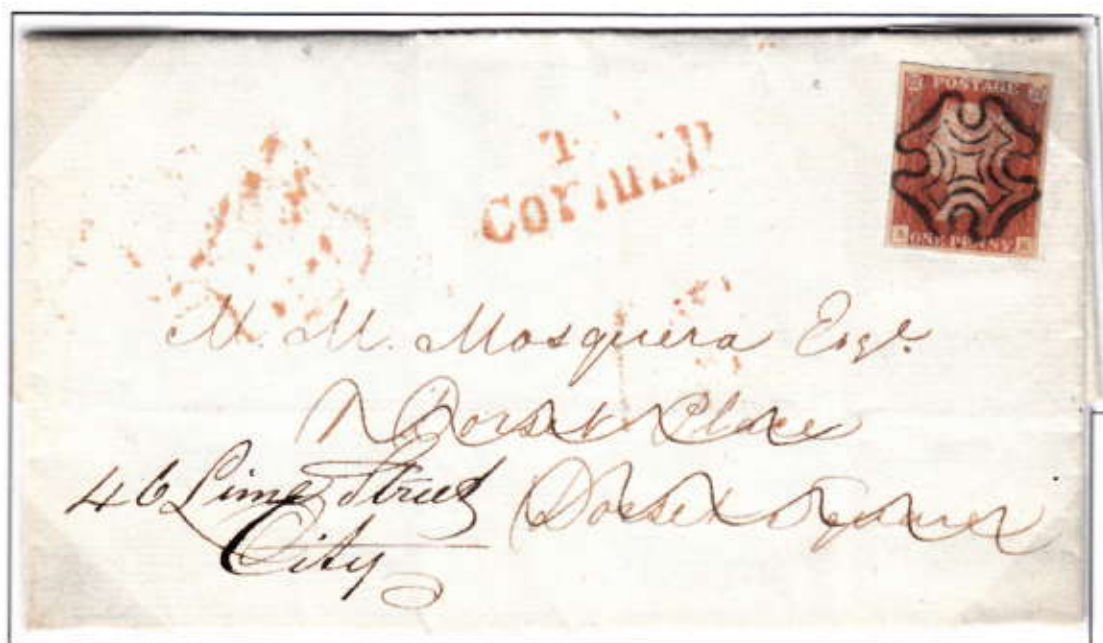 POSTAGE
ONE PENNY
T.P
Cornhill
M. M. Mosquera Esqr.
Dorset Place
Dorset Square
46 Lime Street
City